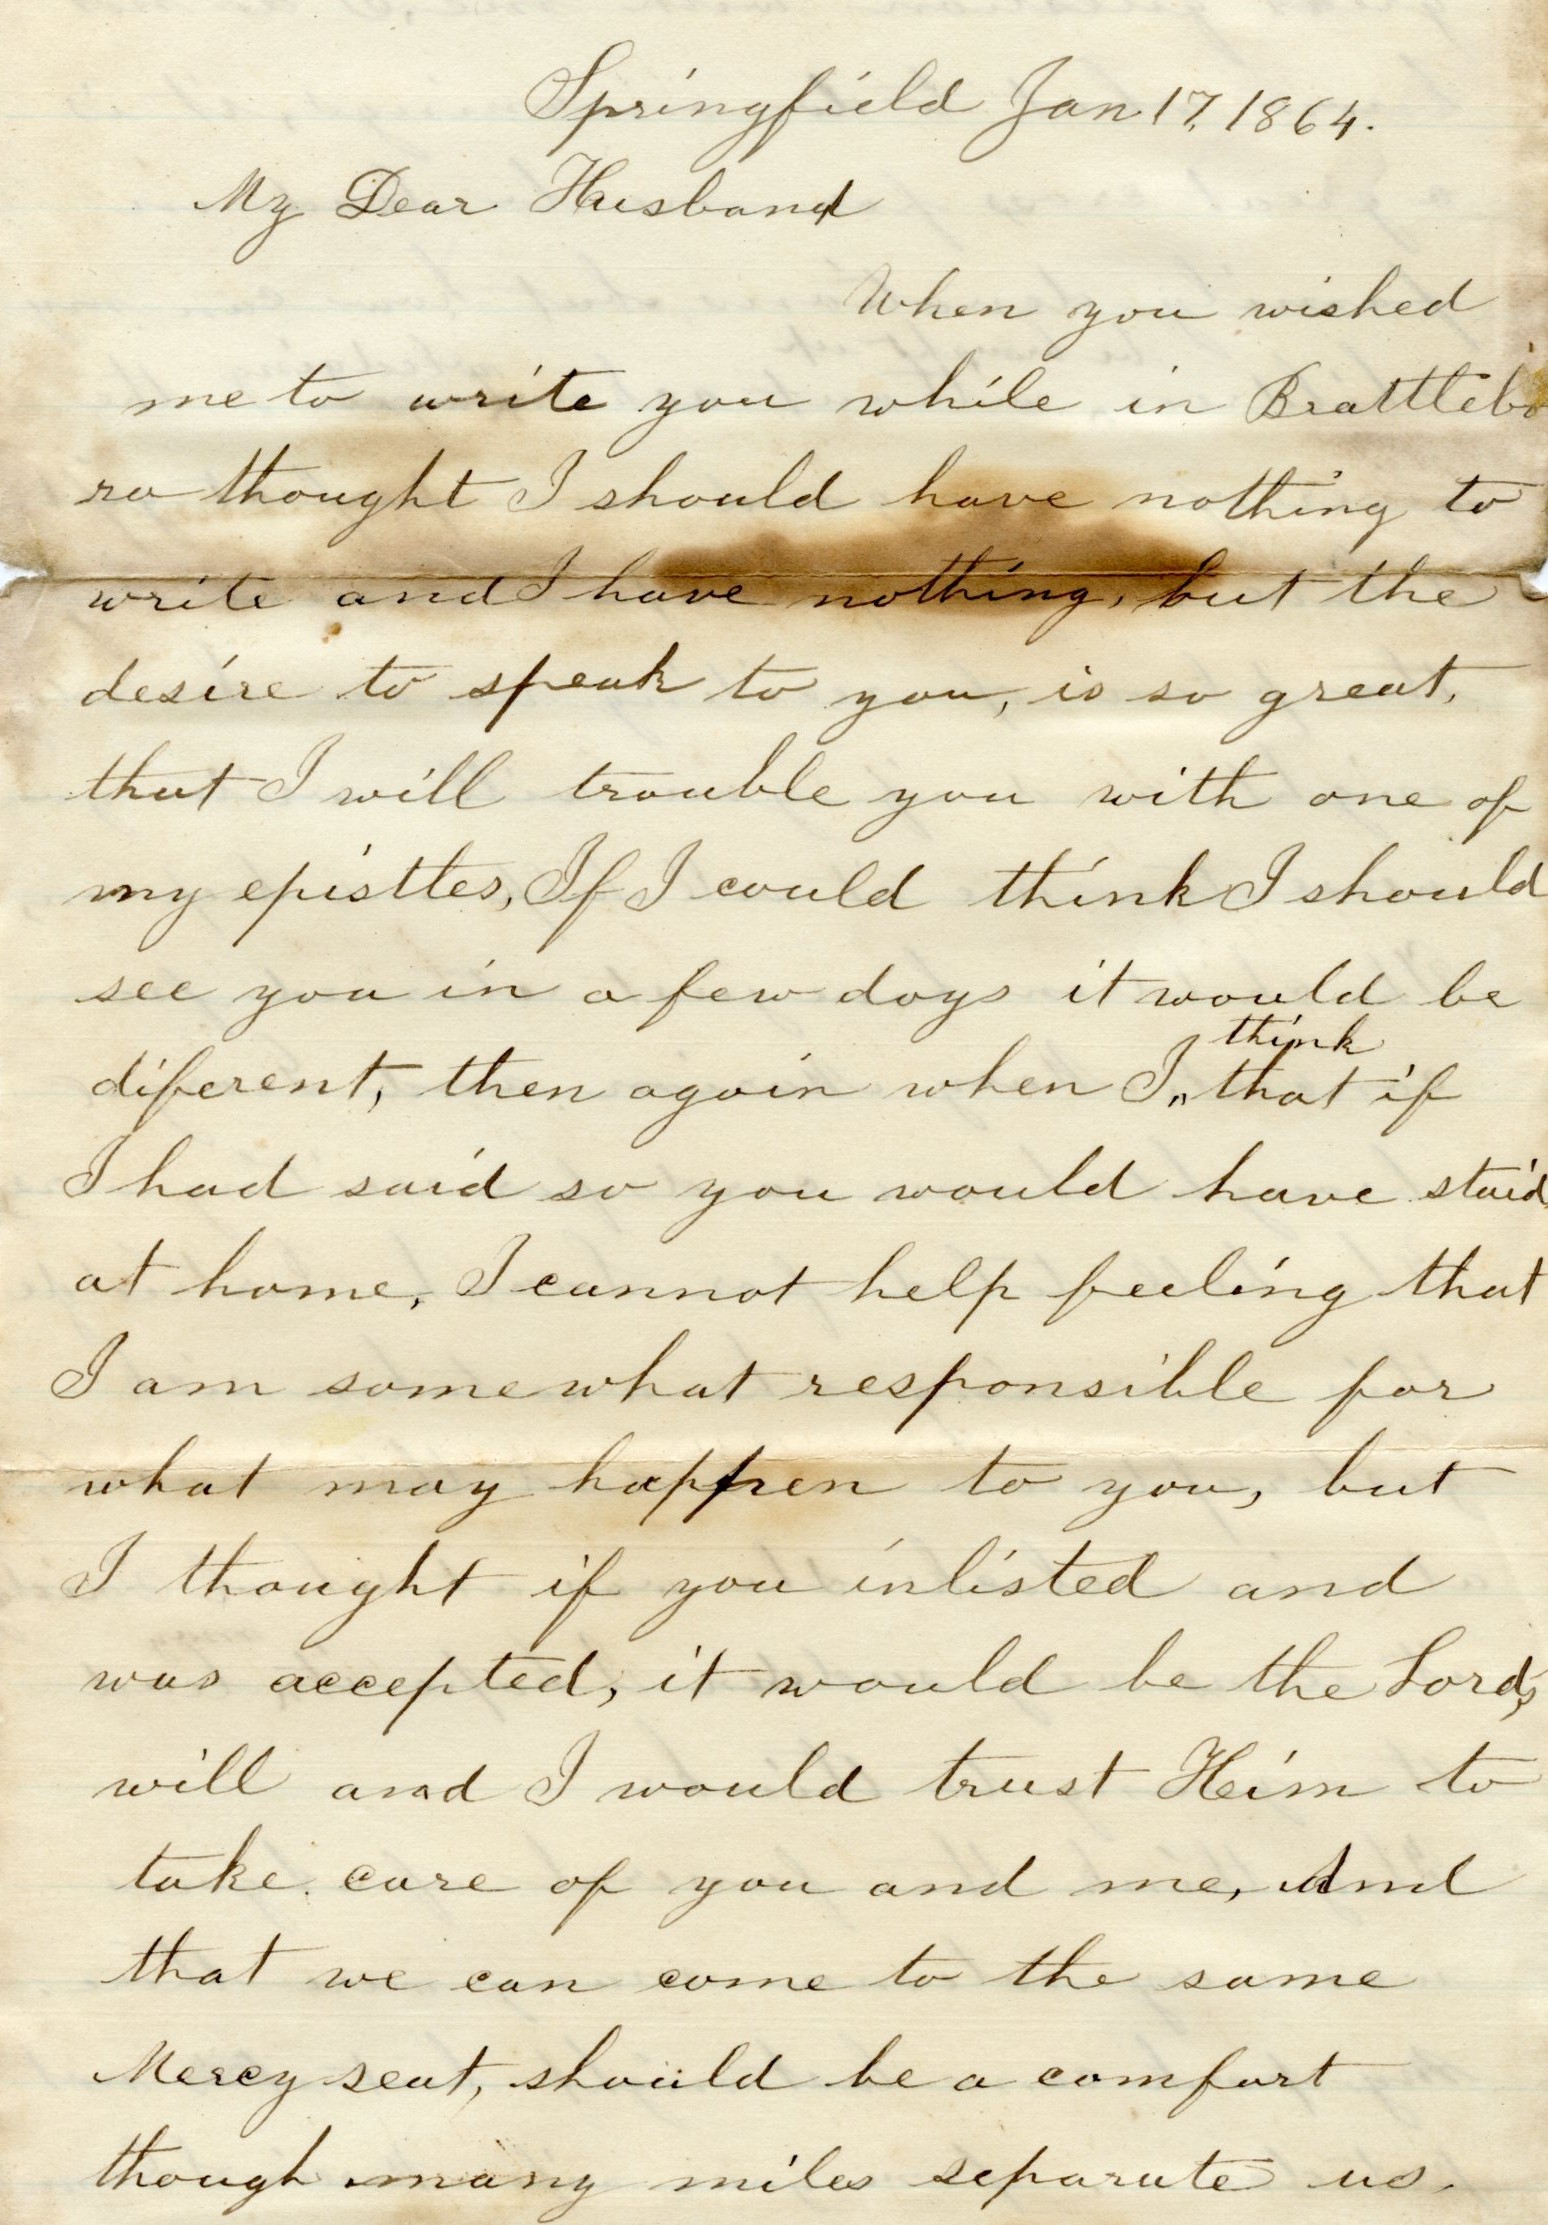 Springfield Jan 17, 1864.
My Dear Husband
When you wished
me to write you while in Brattlebo
ro thought I should have nothing to
write and I have nothing, but the
desire to speak to you, is so great,
that I will trouble you with one of
my epistles, If I could think I should
see you in a few days it would be
think
diferent, then again when I,, that if
I had said so you would have staid
at home, I cannot help feeling that
I am somewhat responsible for
what may happen to you, but
I thought if you inlisted and
was accepted, it would be the Lord,s
will and I would trust Him to
take care of you and me, And
that we can come to the same
Mercy seat, should be a comfort
though many miles separate us.